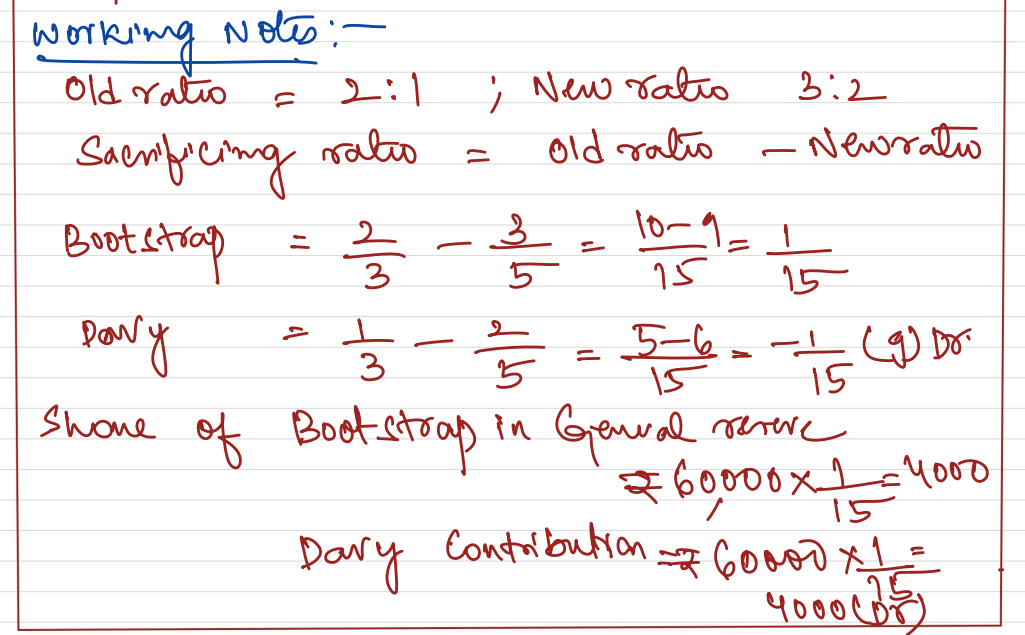 Working Notes:-
Old ratio = 2:1 ; New ratio 3:2
Sacrificing ratio = Old ratio - New ratio
Bootstrap = 2/3 - 3/5 = 10-9/15 = 1/15
Davy = 1/3 - 2/5 = 5-6/15 = -1/15 (g) Dr.
Share of Bootstrap in General reserve
= 60,000 × 1/15 = 4000
Davy Contribution = 60000 × 1/15 =
4000 (Dr)